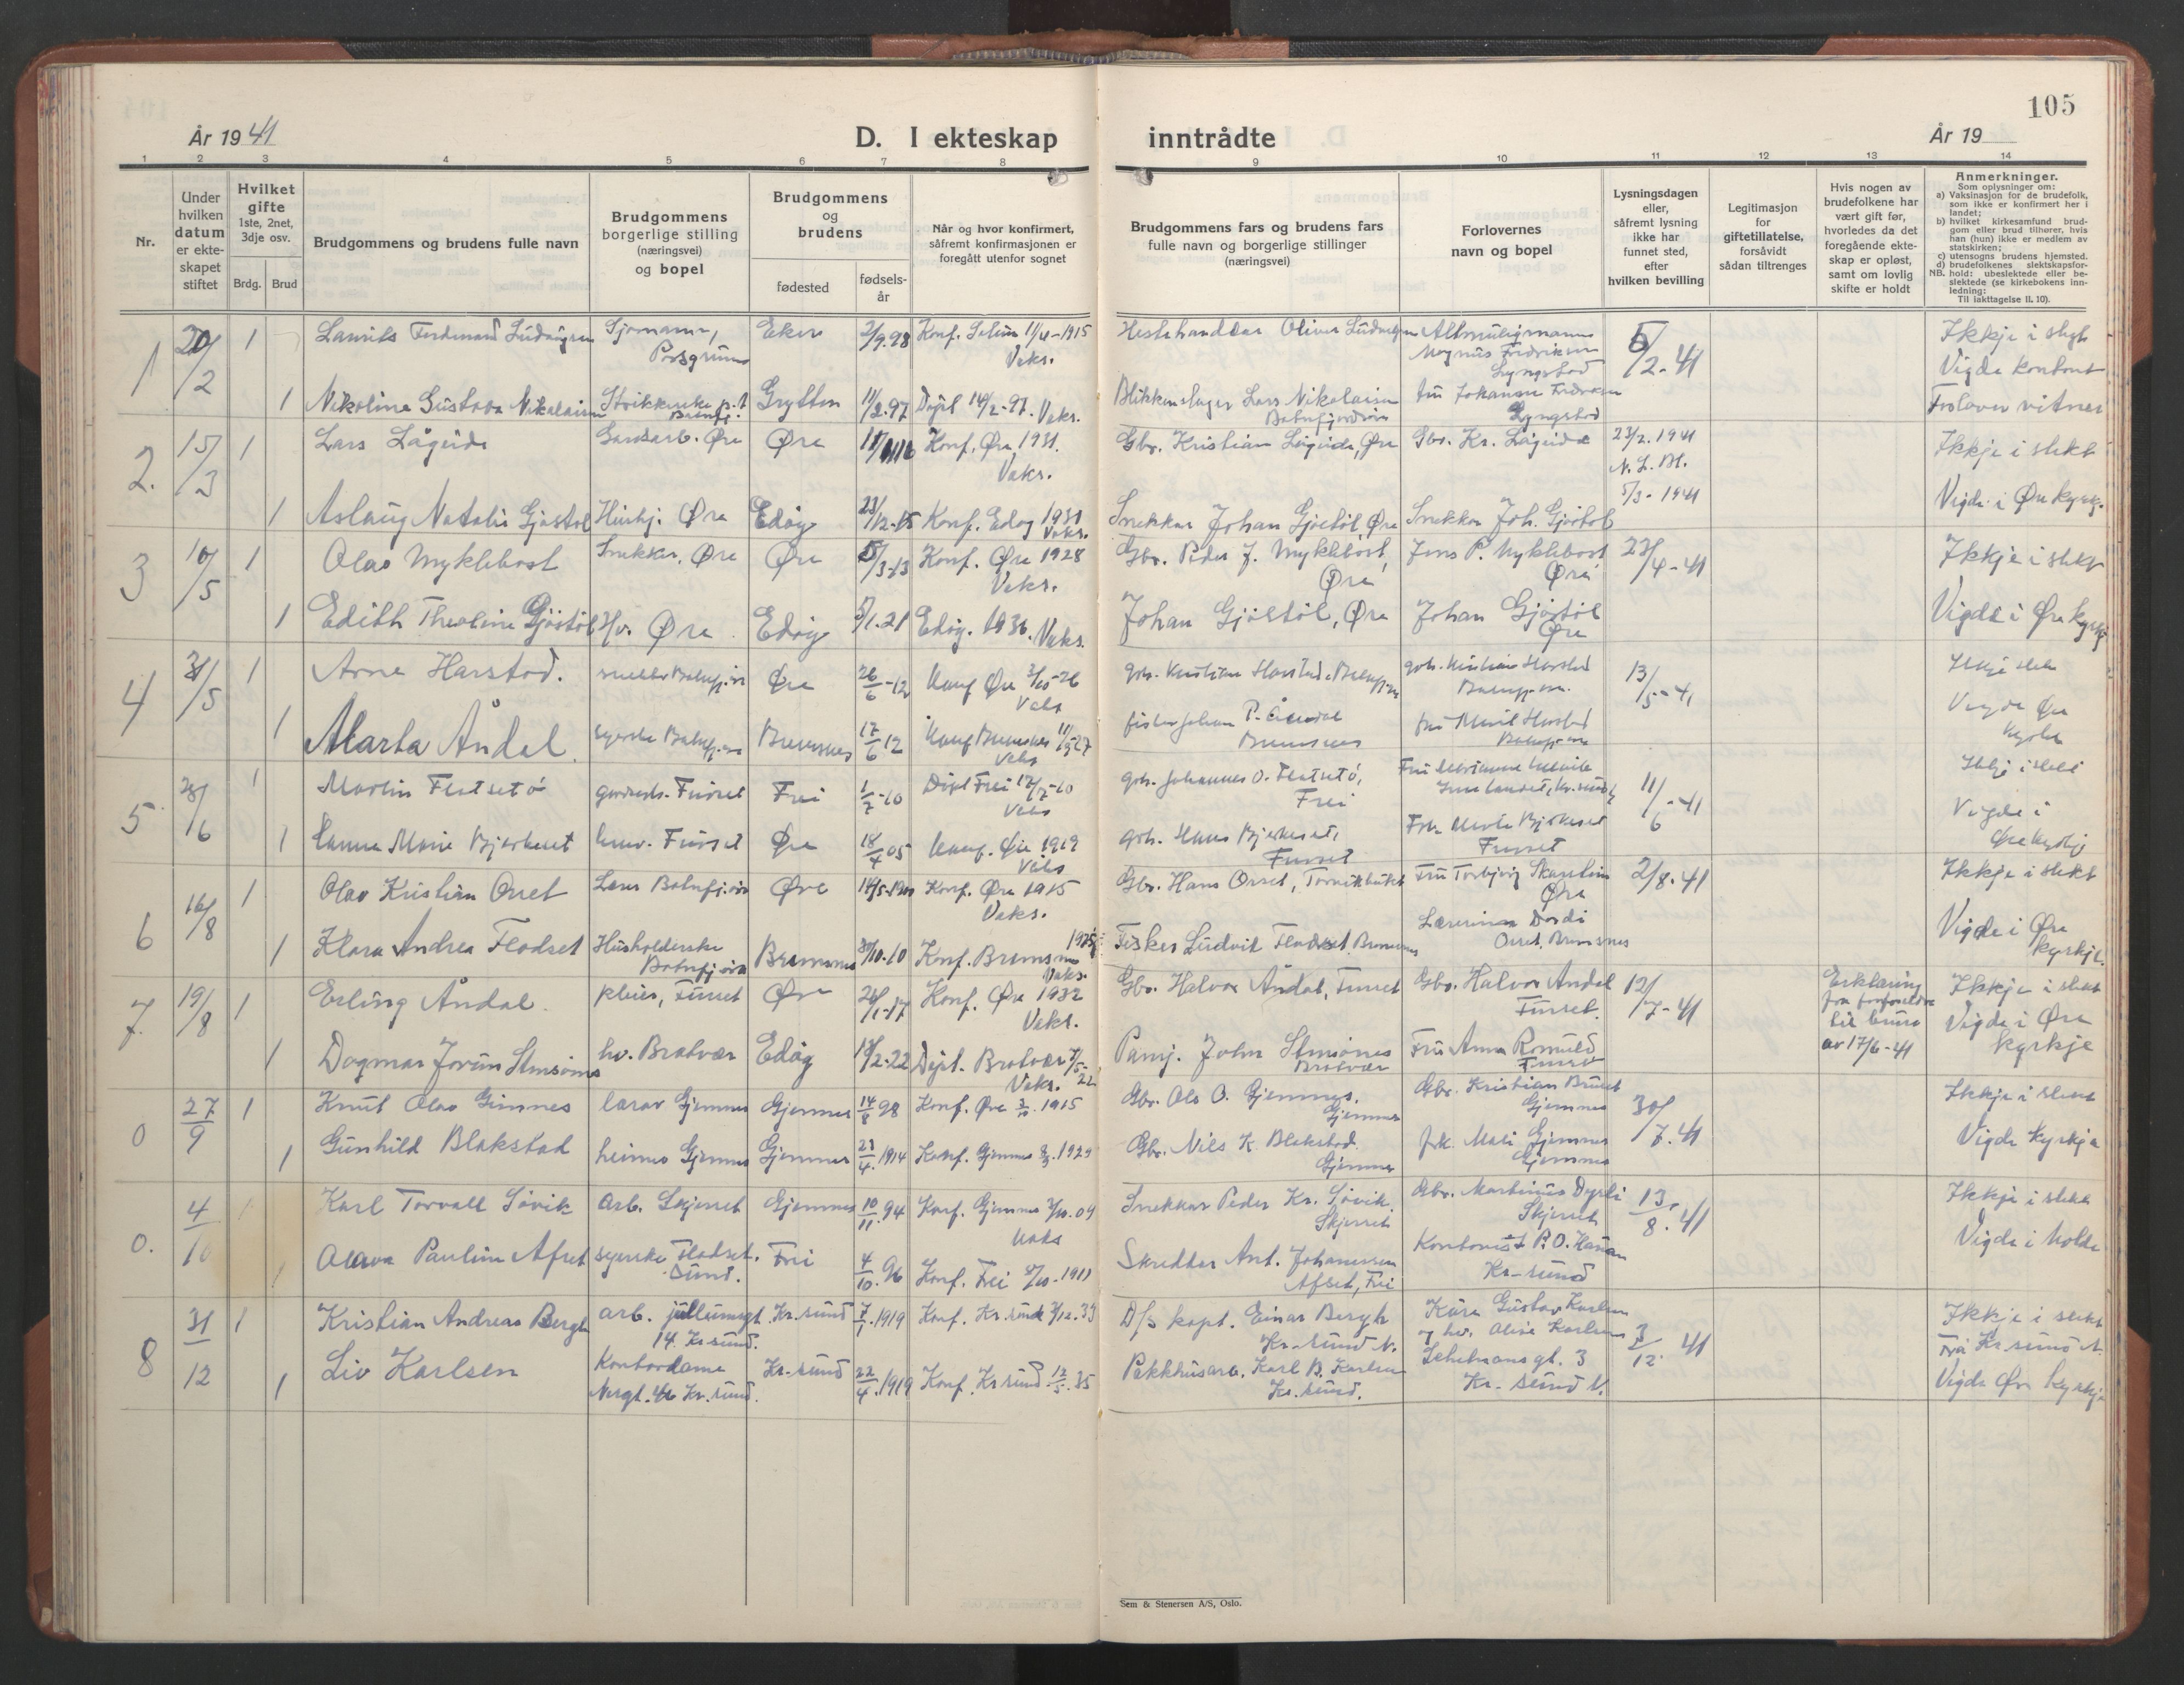 105
År 1941
D. I ekteskap
inntrådte
År 19
1 2 3 4 5 6 7 8
9 10 11 12 13 14
Nr.
Under hvilken datum er ekteskapet stiftet
Hvilket gifte
1ste, 2net, 3dje osv.
Brdg. Brud
Brudgommens og brudens fulle navn
Brudgommens borgerlige stilling (næringsvei) og bopel
Brudgommens og brudens
fødested
fødselsår
Når og hvor konfirmert, såfremt konfirmasjonen er foregått utenfor sognet
Brudgommens fars og brudens fars fulle navn og borgerlige stillinger (næringsvei)
Forlovernes navn og bopel
Lysningsdagen eller, såfremt lysning ikke har funnet sted, efter hvilken bevilling
Legitimasjon for giftetillatelse, forsåvidt sådan tiltrenges
Hvis nogen av brudefolkene har vært gift før, hvorledes da det foregående ekteskap er opløst, samt om lovlig skifte er holdt
Anmerkninger.
Som oplysninger om:
a) Vaksinasjon for de brudefolk, som ikke er konfirmert her i landet;
b) hvilket kirkesamfund brudgom eller brud tilhører, hvis han (hun) ikke er medlem av statskirken;
c) utensogns brudens hjemsted.
d) brudefolkenes slektskapsforhold: ubeslektede eller beslektede (se kirkebokens innledning:
NB.
Til iakttagelse II. 10).
1 20/2 1 Laurits Ferdinand Ludvigsen Sjømann, Porsgrunn Eker 2/9.98 Konf. Solum 11/4-1915 Vaks.
Hestehandlar Oliver Ludvigsen Altmuligmann Magnus Fredriksen Lyngstad 5/2-41 Ikkje i slegt
Vigde kontant
1 Nikoline Gustava Nikolaisen Grytten 11/2.97 Døpt 14/2-97. Vaks.
Blikkenslager Lars Nikolaisen Batnfjordsøra fru Johanna Fredriksen Lyngstad Forlover vitner
2. 15/3 1 Lars Lågeide Gardsarb. Øre Øre Konf. Øre 1931. Vaks.
Gbr. Kristian Lågeide, Øre Gbr. Kr. Lågeide 23/2.1941 N. L. Bl. 5/3-1941 Ikkje i slekt
1 Aslaug Natalie Gjøstøl Hushj. Øre Edøy 23/12-15 Konf. Edøy 1931 Vaks.
Snekkar Johan Gjøstøl, Øre Snekkar Joh. Gjøstøl Vigde i Øre kyrkje.
3 10/5 1 Olav Myklebost Snekker, Øre Øre 5/3-13 Konf. Øre 1928 Vaks.
Gbr. Peder J. Myklebost, Øre Jens P. Myklebost, Øre 23/4-41 Ikkje i slekt
1 Edith Theoline Gjøstøl Hv. Øre Edøy 5/1.21 Edøy. 1936. Vaks.
Johan Gjøstøl, Øre Johan Gjøstøl Øre Vigde i Øre kyrkje
4 31/5 1 Arne Harstad. Øre 26/6-12 Konf Øre 3/10-26 Vaks
gbr. Kristian Harstad, gbr. Kristian Harstad 13/5-41
1 Marta Åndal. Bremsnes 17/6 12 Konf Bremsnes 11/9-27 Vaks
fisker Johan P. Åndal Bremsnes fru Marit Harstad Vigde Øre kyrkje
5 28/6 1 Martin Flatsetø gardsarb. Furset Frei 1/7-10 Døpt Frei 17/7-10 Vaks
gbr. Johannes O. Flatsetø, Frei 11/6-41 Ikkje i slekt
1 Hanna Marie Bjerkeset husv. Furset Øre 18/4 05 Konf. Øre 1919 Vaks
gbr. Hans Bjerkeset, Furset Frk. Marta Bjerkeset Furset Vigde i Øre kyrkje
6 16/8 1 Olav Kristian Orset Batnfj.øra Øre 14/5-1901 Konf. Øre 1915 Vaks.
Gbr. Hans Orset, Torvikbukt Fru Torbjørg Øre 2/8-41 Ikkje i slekt
1 Klara Andrea Flatset Husholderske Batnfj.øra Bremsnes 30/10-10 Konf. Bremsnes 1925 Vaks.
Fisker Ludvik Flatset Bremsnes Lærerinne Dordi Orset, Bremsnes Vigde i Øre kyrkje.
7. 19/8 1 Erling Åndal. Furset Øre Konf. Øre 1932 Vaks.
Gbr. Halvor Åndal, Furset Gbr. Halvor Åndal Furset. 12/7-41 Erklæring fra foreldre til brura av 17/6-41 Ikkje i slekt
1 Dagmar Jorun hv. Bratvær Edøy 14/2-22 Døpt. Bratvær 7/5-22 Vaks.
John Bratvær Fru Anna Romuld Furset Vigde i Øre kyrkje
0 27/9 1 Knut Olav Gimnes lærar Gjemnes Gjemnes 14/8 98 Konf. Øre 3/10.1915
Gbr. Ole O. Gjemnes, Gjemnes Gbr. Kristian Bruset Gjemnes 30/7.41 Ikkje i slekt
1 Gunhild Blakstad heime Gjemnes Gjemnes 21/4.1914 Konf. Gjemnes 1929
Gbr. Nils K. Blakstad. Gjemnes frk. Mali Gjemnes Gjemnes Vigde kyrkja
0. 4/10 1 Karl Torvall Søvik arb. Skjerset Gjemnes 10/11.94 Konf. Gjemnes 3/10.09 Vaks
Snekkar Peder Kr. Søvik. Skjerset Gbr. Martinus Dyrli Skjerset 13/8.41 Ikkje i slekt
1 Olava Pauline Afset syerske Flatset. Sund. Frei 4/10.96 Konf. Frei 1911
Skredder Ant. Johannesen Afset, Frei Kontorist P.O. Hanan Kr-sund Vigde i Molde
8 31/12 1 Kristian Andreas Bergh arb. 14. Kr.sund. Kr.sund 7/1.1919 Konf. Kr.sund 3/12.33
D/s kapt. Einar Bergh Kr-sund N. Kåre Gustav Karlsen og hv. Alise Karlsen 3/12. 41 Ikkje i slekt
1 Liv Karlsen Kontordame Kr.sund. Kr-sund 22/4.1919 Konf. Kr.sund 12/5.35
Pakkhusarb. Karl B. Karlsen Kr.sund. gt. 3 Kr-sund N. Frå Kr.sund N. Vigde Øre kyrkje
Sem & Stenersen A/S, Oslo.